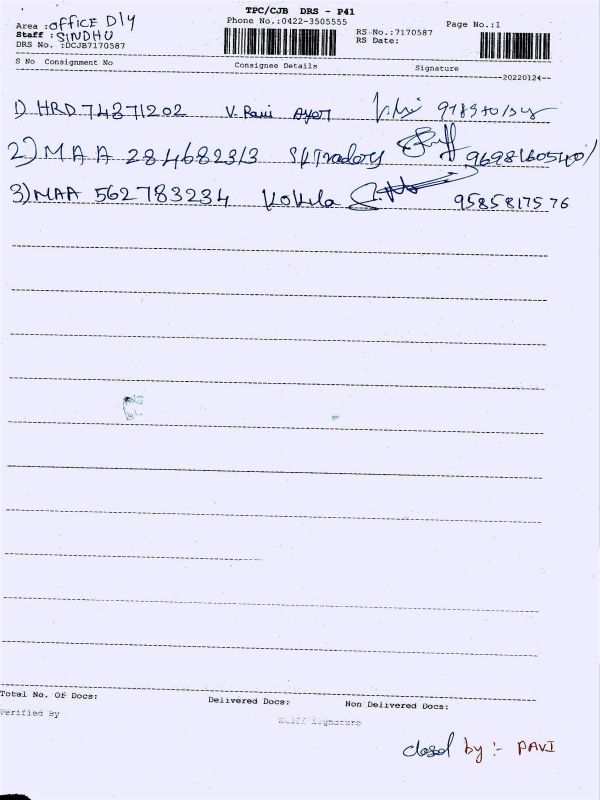 TPC/CJB DRS - P41
Area :OFFICE Dly Phone No.:0422-3505555 Page No.:1
Staff :SINDHU RS No.:7170587
DRS No. :DCJB7170587 RS Date:
S No Consignment No Consignee Details Signature
20220124
1) HRD 74371202 V. Ravi
2) MAA 284682313
3) MAA 562783234 Kokila 9585817576
Total No. Of Docs: Delivered Docs: Non Delivered Docs:
Verified By Staff Signature
closed by :- PAVI